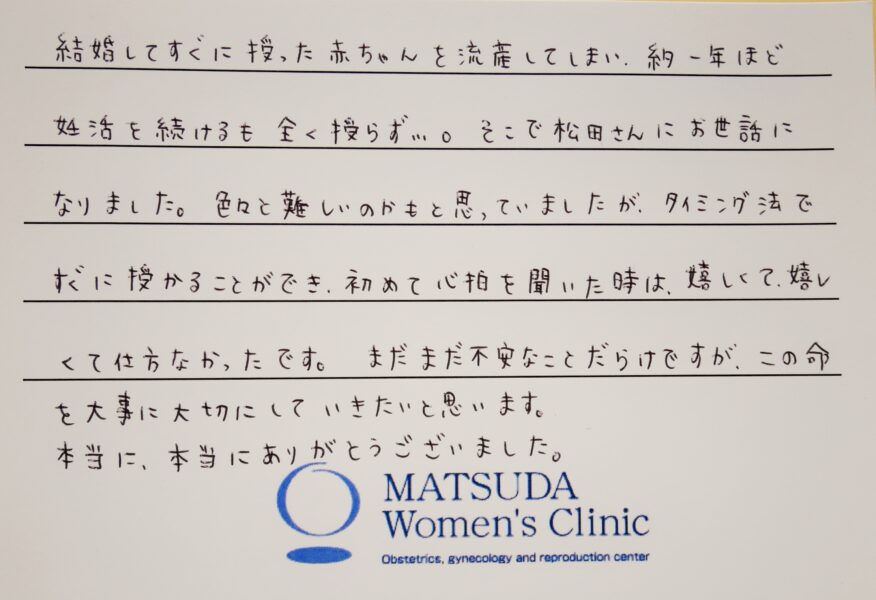 結婚してすぐに授った赤ちゃんを流産してしまい、約一年ほど
妊活を続けるも全く授らず…。そこで松田さんにお世話に
なりました。色々と難しいのかもと思っていましたが、タイミング法で
すぐに授かることができ、初めて心拍を聞いた時は、嬉しくて、嬉し
くて仕方なかったです。まだまだ不安なことだらけですが、この命
を大事に大切にしていきたいと思います。
本当に、本当にありがとうございました。
MATSUDA
Women's Clinic
Obstetrics, gynecology and reproduction center